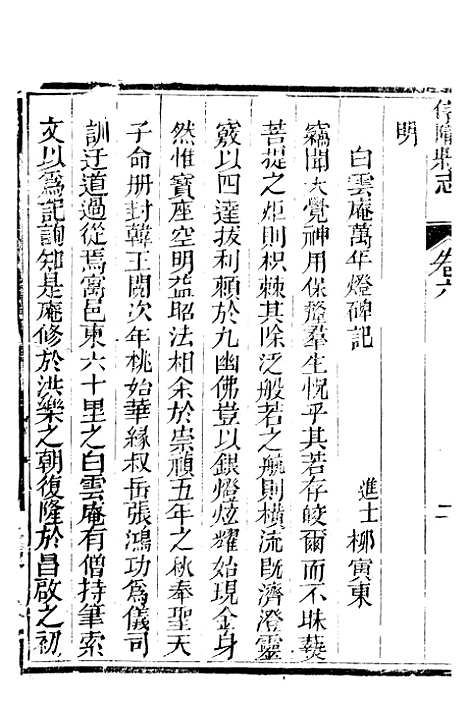 信陽縣志
卷六
二
明
白雲庵萬年燈碑記
進士 柳寅東
竊聞大覺神用保釐羣生恍乎其若存皎爾而不昧爇
菩提之炬則枳棘其除泛般若之航則橫流旣濟澄靈
竅以四達拔利賴於九幽佛豈以銀燈炫耀始現金身
然惟寶座空明益昭法相余於崇禎五年之秋奉聖天
子命册封韓王閱次年桃始華緣叔岳張鴻功爲儀司
訓迂道過從焉寓邑東六十里之白雲庵有僧持筆索
文以爲記詢知是庵修於洪樂之朝復隆於昌啟之初